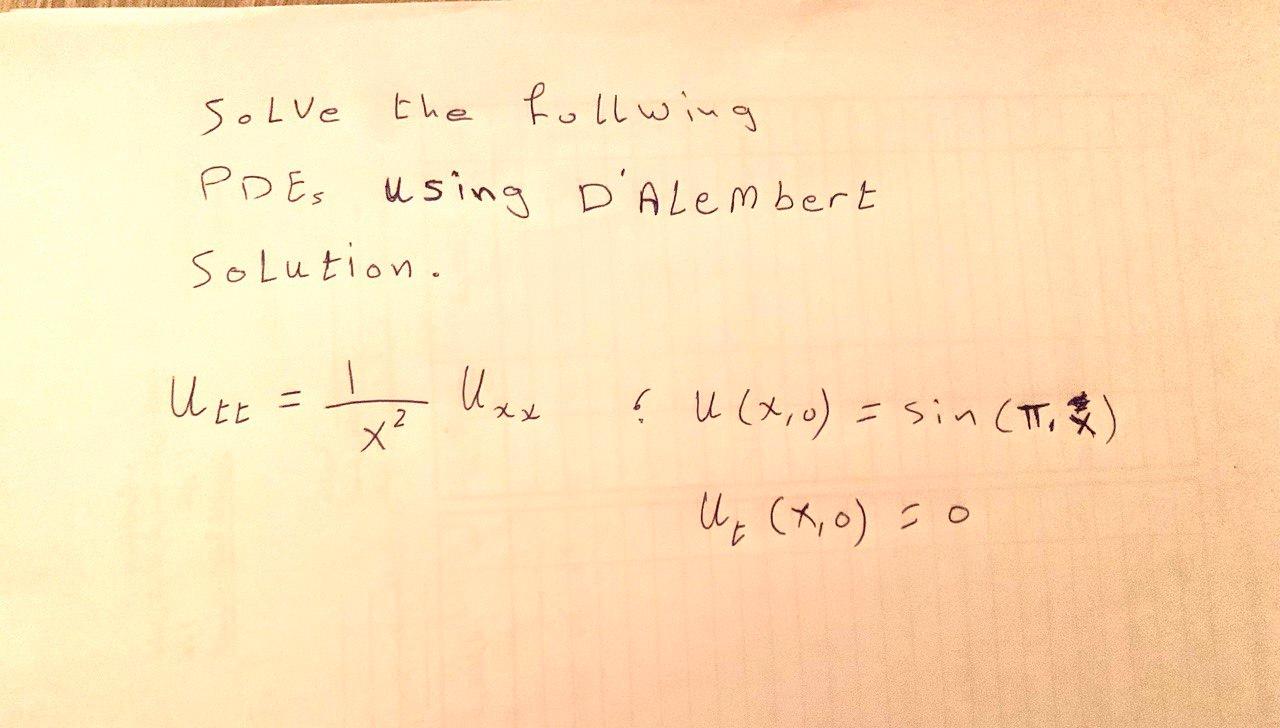 Solve the follwing
PDEs using D'Alembert
Solution.
U_tt = 1/x² U_xx ; u(x,0) = sin(π.x)
U_t(x,0) = 0